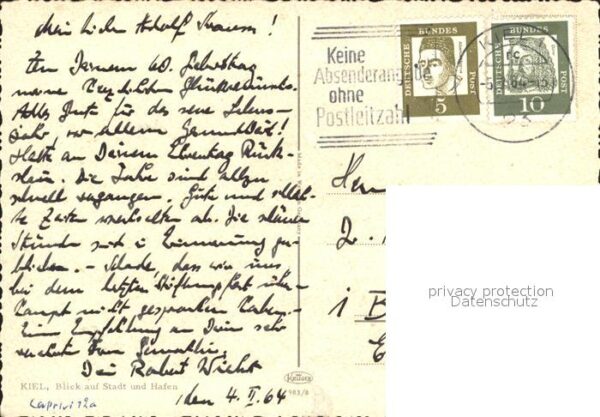 Mein lieber Adolf
Zu Deinem 60. Geburtstag
meine herzlichen Glückwünsche.
Alles Gute für das neue Lebens-
jahr, vor allem Gesundheit!
Halte an Deinem Ehrentag Rück-
schau. Die Jahre sind allzu
schnell vergangen. Gute und schlech-
te Zeiten wechselten ab. Die schönen
Stunden sind in Erinnerung ge-
blieben. - Schade, dass wir uns
bei dem letzten Stiftungsfest über-
haupt nicht gesprochen haben. -
Eine Empfehlung an Deine sehr
verehrte Frau Gemahlin,
Dein Robert
KIEL, Blick auf Stadt und Hafen
den 4. II. 64
Keine
Absenderangabe
ohne
Postleitzahl
DEUTSCHE BUNDES POST
5
DEUTSCHE BUNDES POST
10
privacy protection
Datenschutz